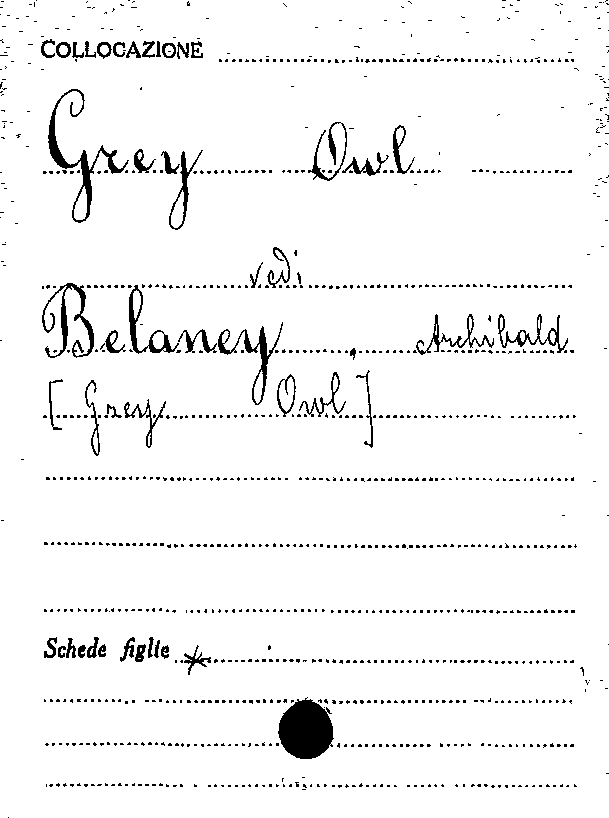 COLLOCAZIONE
Grey Owl
vedi
Belaney, Archibald
[Grey Owl]
Schede figlie *